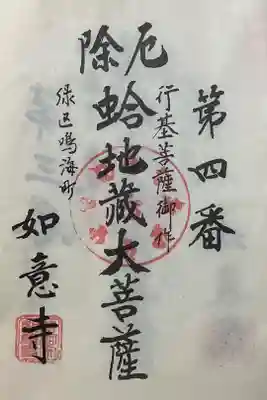 第四番
行基菩薩御作
厄除
蛤地藏大菩薩
緑区鳴海町
如意寺